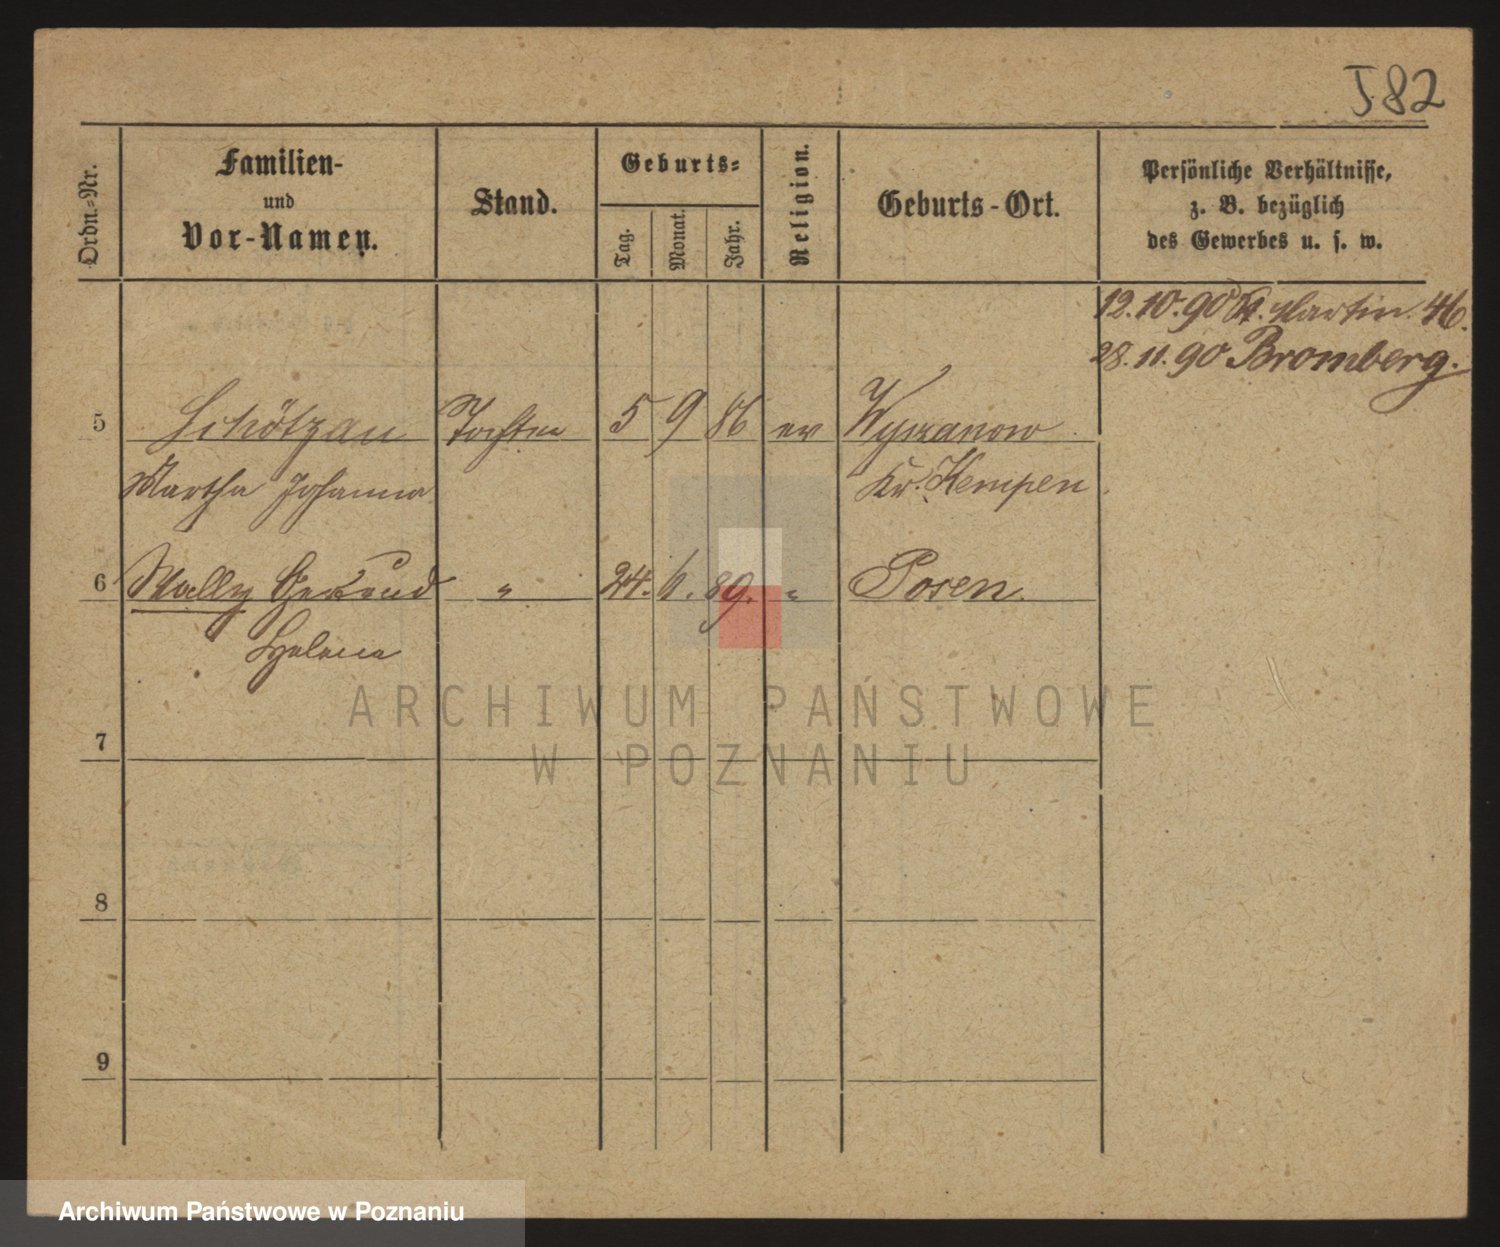 J82
Ordn.-Nr.
Familien-
und
Vor-Namen.
Stand.
Geburts-
Tag.
Monat.
Jahr.
Religion.
Geburts-Ort.
Persönliche Verhältnisse,
z. B. bezüglich
des Gewerbes u. s. w.
12.10.90 St. Martin 46.
28.11.90 Bromberg.
5 Schötzau Tochter 5 9 86 ev Wyszanow
Martha Johanna Kr. Kempen
6 Wally Gertrud " 24. 6. 89. " Posen.
Helene
ARCHIWUM PAŃSTWOWE
W POZNANIU
7
8
9
Archiwum Państwowe w Poznaniu